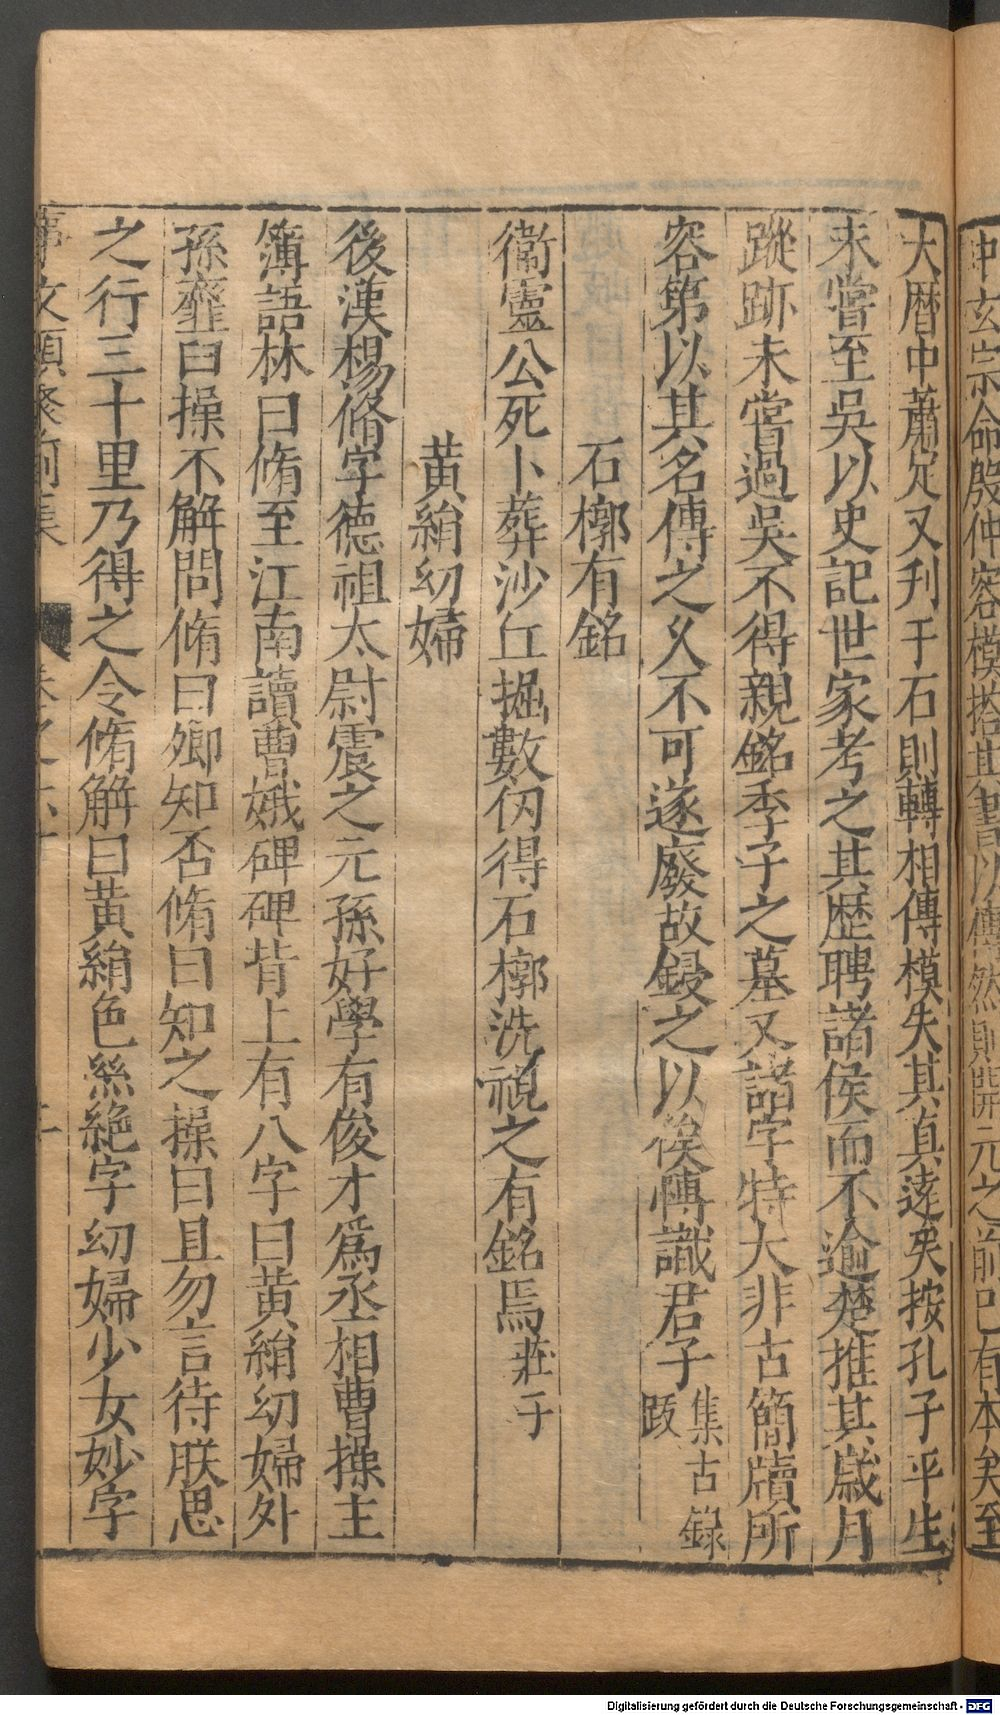 中玄宗命殷仲容模搨其書以傳然則開元之前已有本矣至
大曆中蕭定又刋于石則轉相傳模失其真遠矣按孔子平生
未嘗至吳以史記世家考之其歷聘諸侯而不逾楚推其歲月
蹤跡未嘗過吳不得親銘季子之墓又諸字特大非古簡牘所
容第以其名傳之乆不可遂廢故錄之以俟慱識君子集古錄
跋
石槨有銘
衞靈公死卜葬沙丘掘數仭得石槨洗視之有銘焉莊子
黃絹幼婦
後漢楊脩字德祖太尉震之元孫好學有俊才爲丞相曹操主
簿語林曰脩至江南讀曹娥碑碑背上有八字曰黃絹幼婦外
孫虀臼操不解問脩曰卿知否脩曰知之操曰且勿言待朕思
之行三十里乃得之令脩解曰黃絹色絲絕字幼婦少女妙字
事文類聚前集
卷之六十